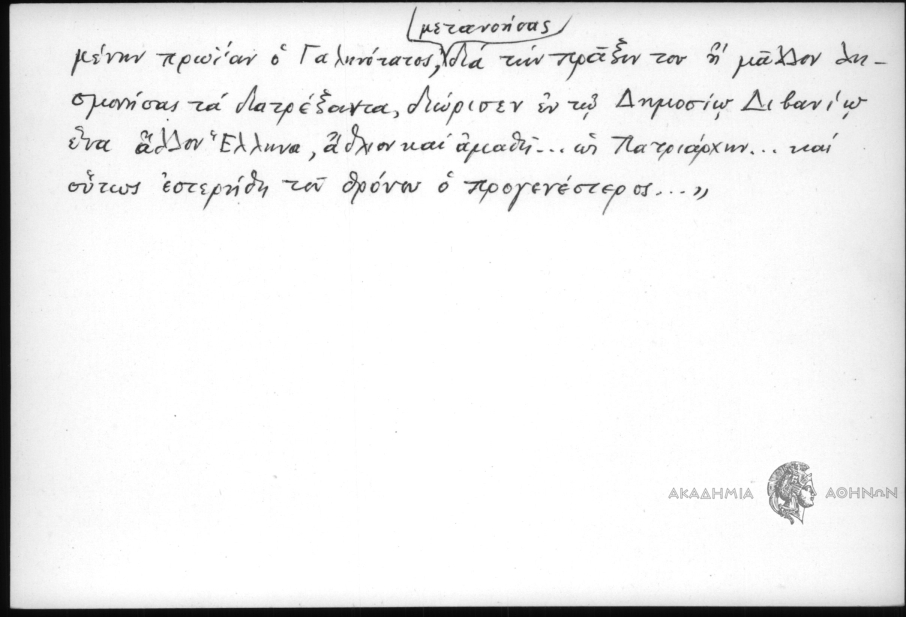 μετανοήσας
μένην πρωΐαν ὁ Γαληνότατος, διά τήν πρᾶξιν του ἤ μᾶλλον λη-
σμονήσας τά διατρέξαντα, διώρισεν ἐν τῷ Δημοσίῳ Διβανίῳ
ἕνα ἄλλον Ἕλληνα, ἄθλιον καί ἀμαθῆ... ὡς Πατριάρχην... καί
οὕτως ἐστερήθη τοῦ θρόνου ὁ προγενέστερος...»
ΑΚΑΔΗΜΙΑ ΑΘΗΝΩΝ